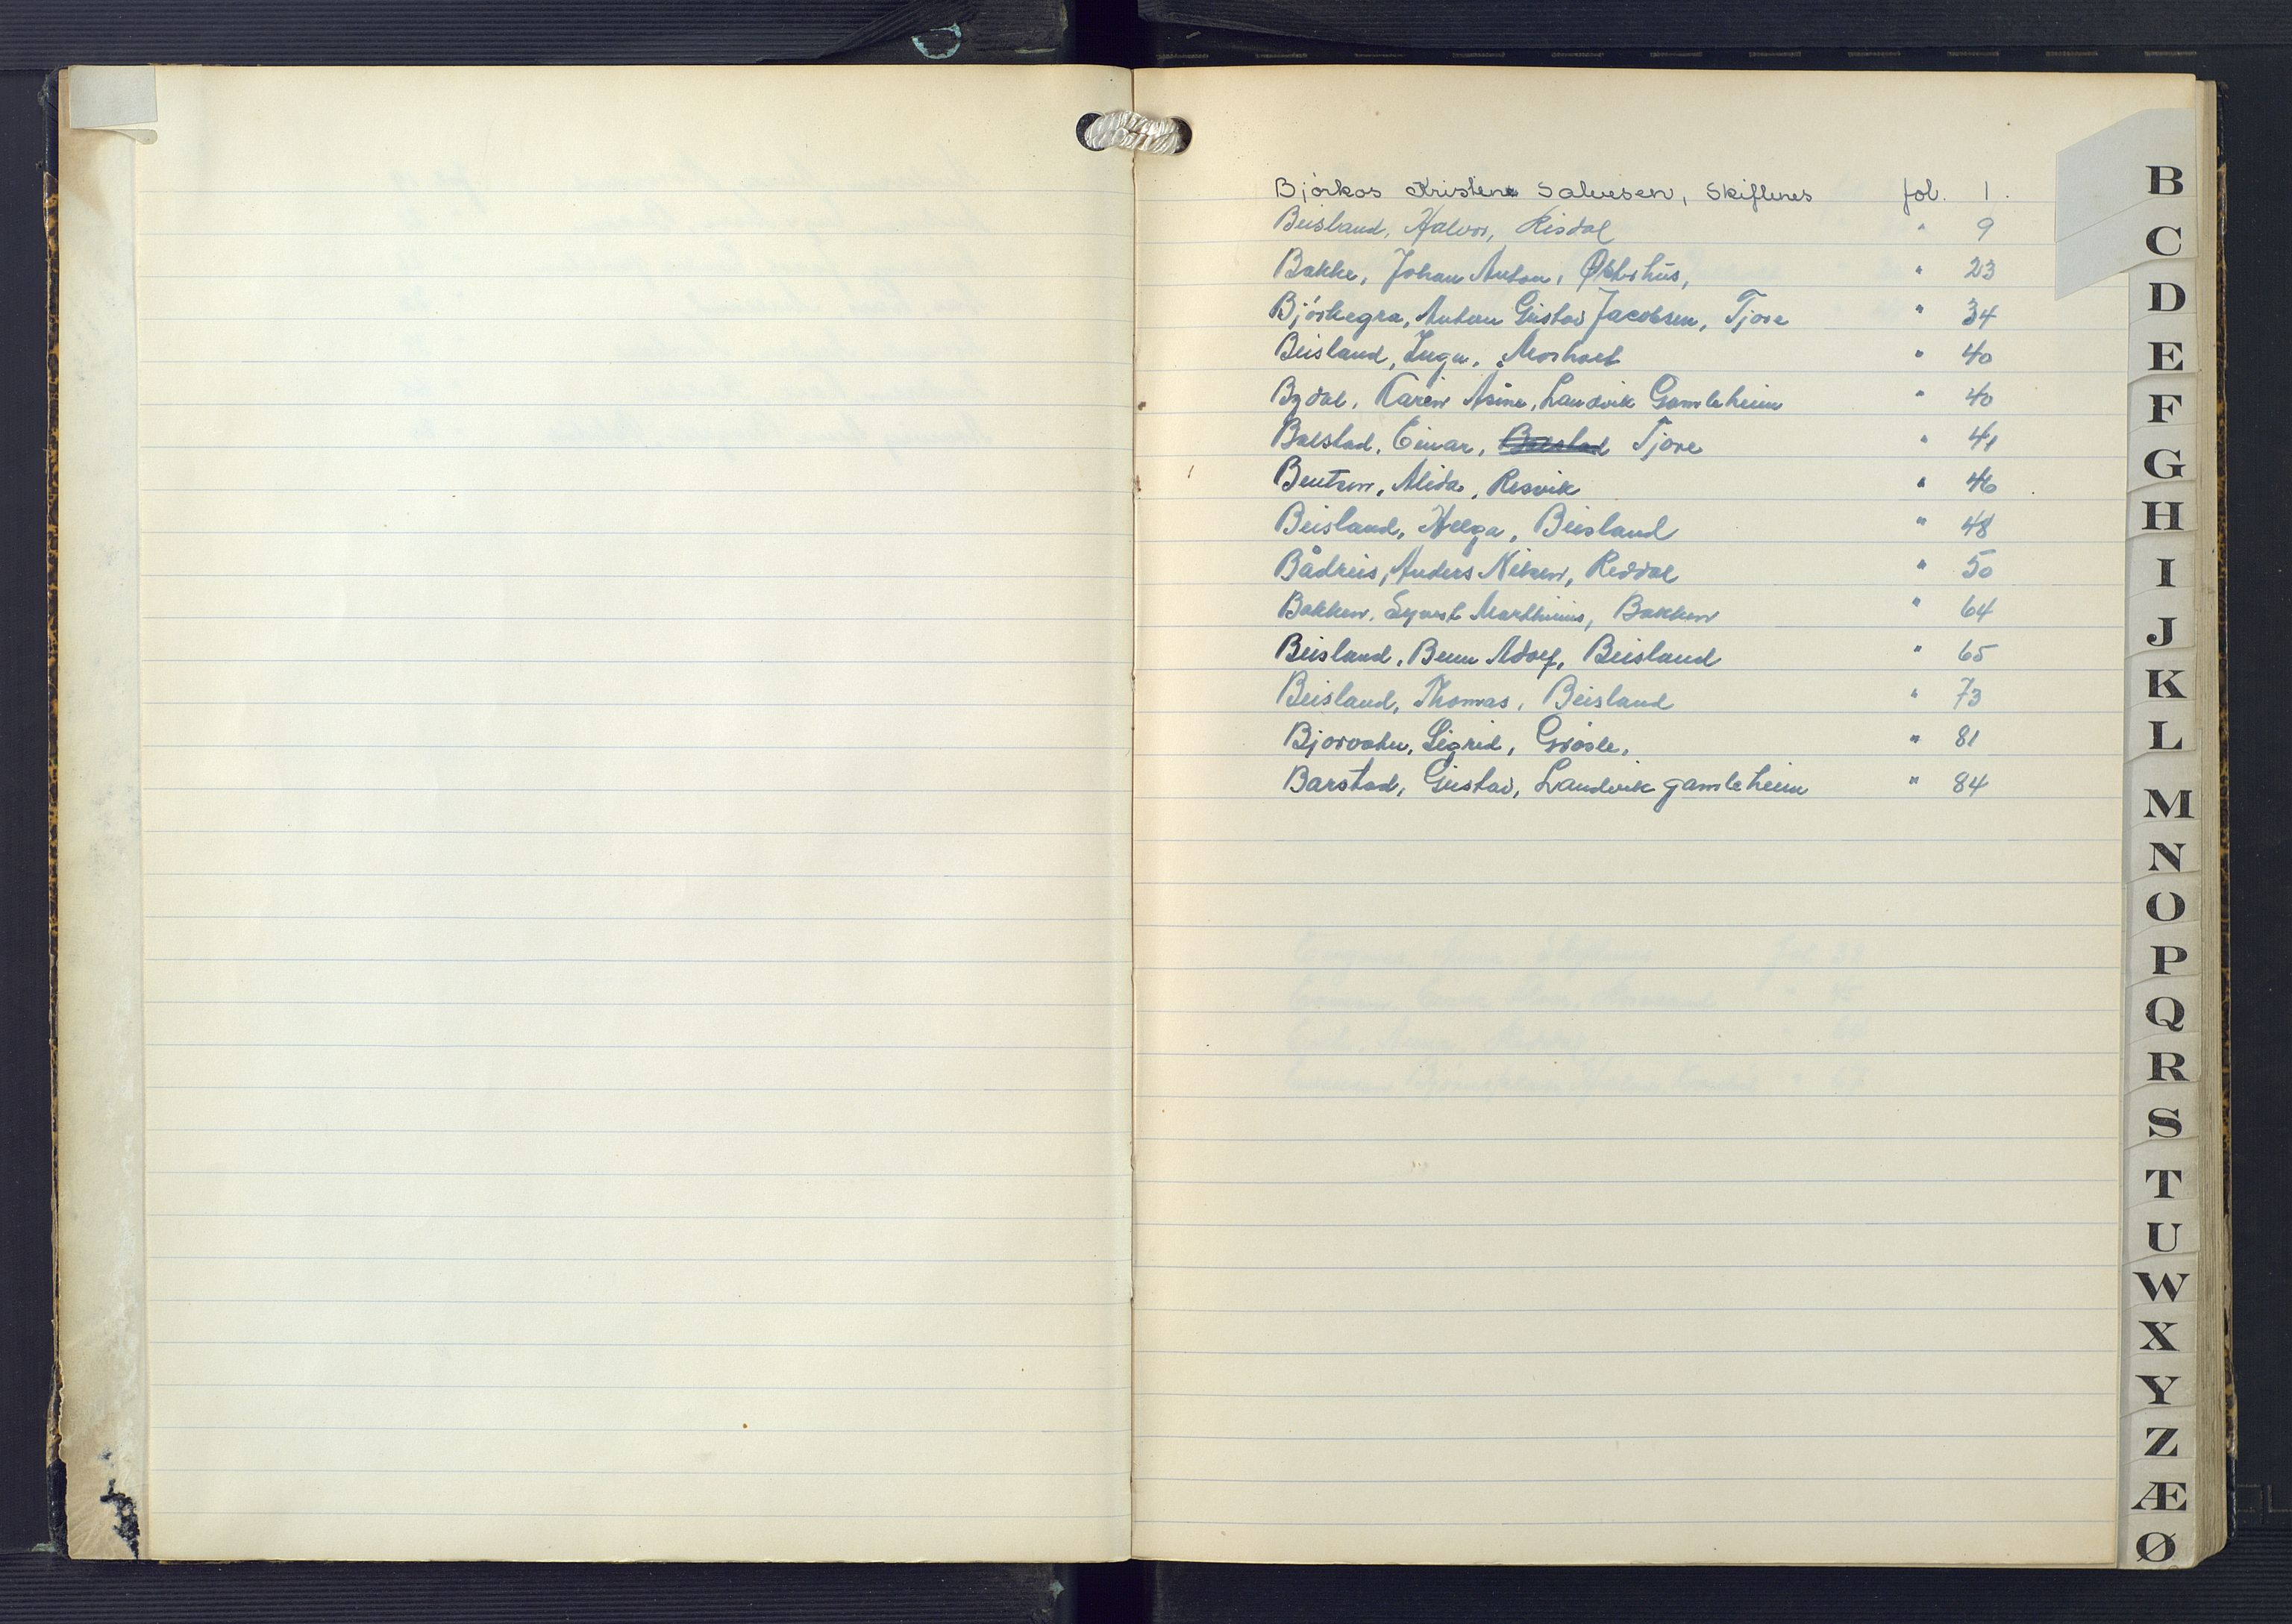 Bjórkos Kristene Salvesen, Skiftenes fol. 1.
Beisland, Halvor, Risdal " 9
Bakke, Johan Anton, Økterhus, " 23
Bjórkegra, Anton Gustav Jacobsen, Tjore " 34
Beisland, Inga, Morholt " 40
Bydal, Karen Asine, Landvik Gamleheim " 40
Balstad, Einar, Balstad Tjore " 41
Bentsen, Alida, Resvik " 46
Beisland, Helga, Beisland " 48
Bådreis, Anders Nilsen, Reddal " 50
Bakken, Syvert Marthinius, Bakken " 64
Beisland, Bernt Adolf, Beisland " 65
Beisland, Thomas, Beisland " 73
Bjorvatn, Sigrid, Grósle, " 81
Barstad, Gustav, Landvik gamleheim " 84
B
C
D
E
F
G
H
I
J
K
L
M
N
O
P
Q
R
S
T
U
W
X
Y
Z
Æ
Ø